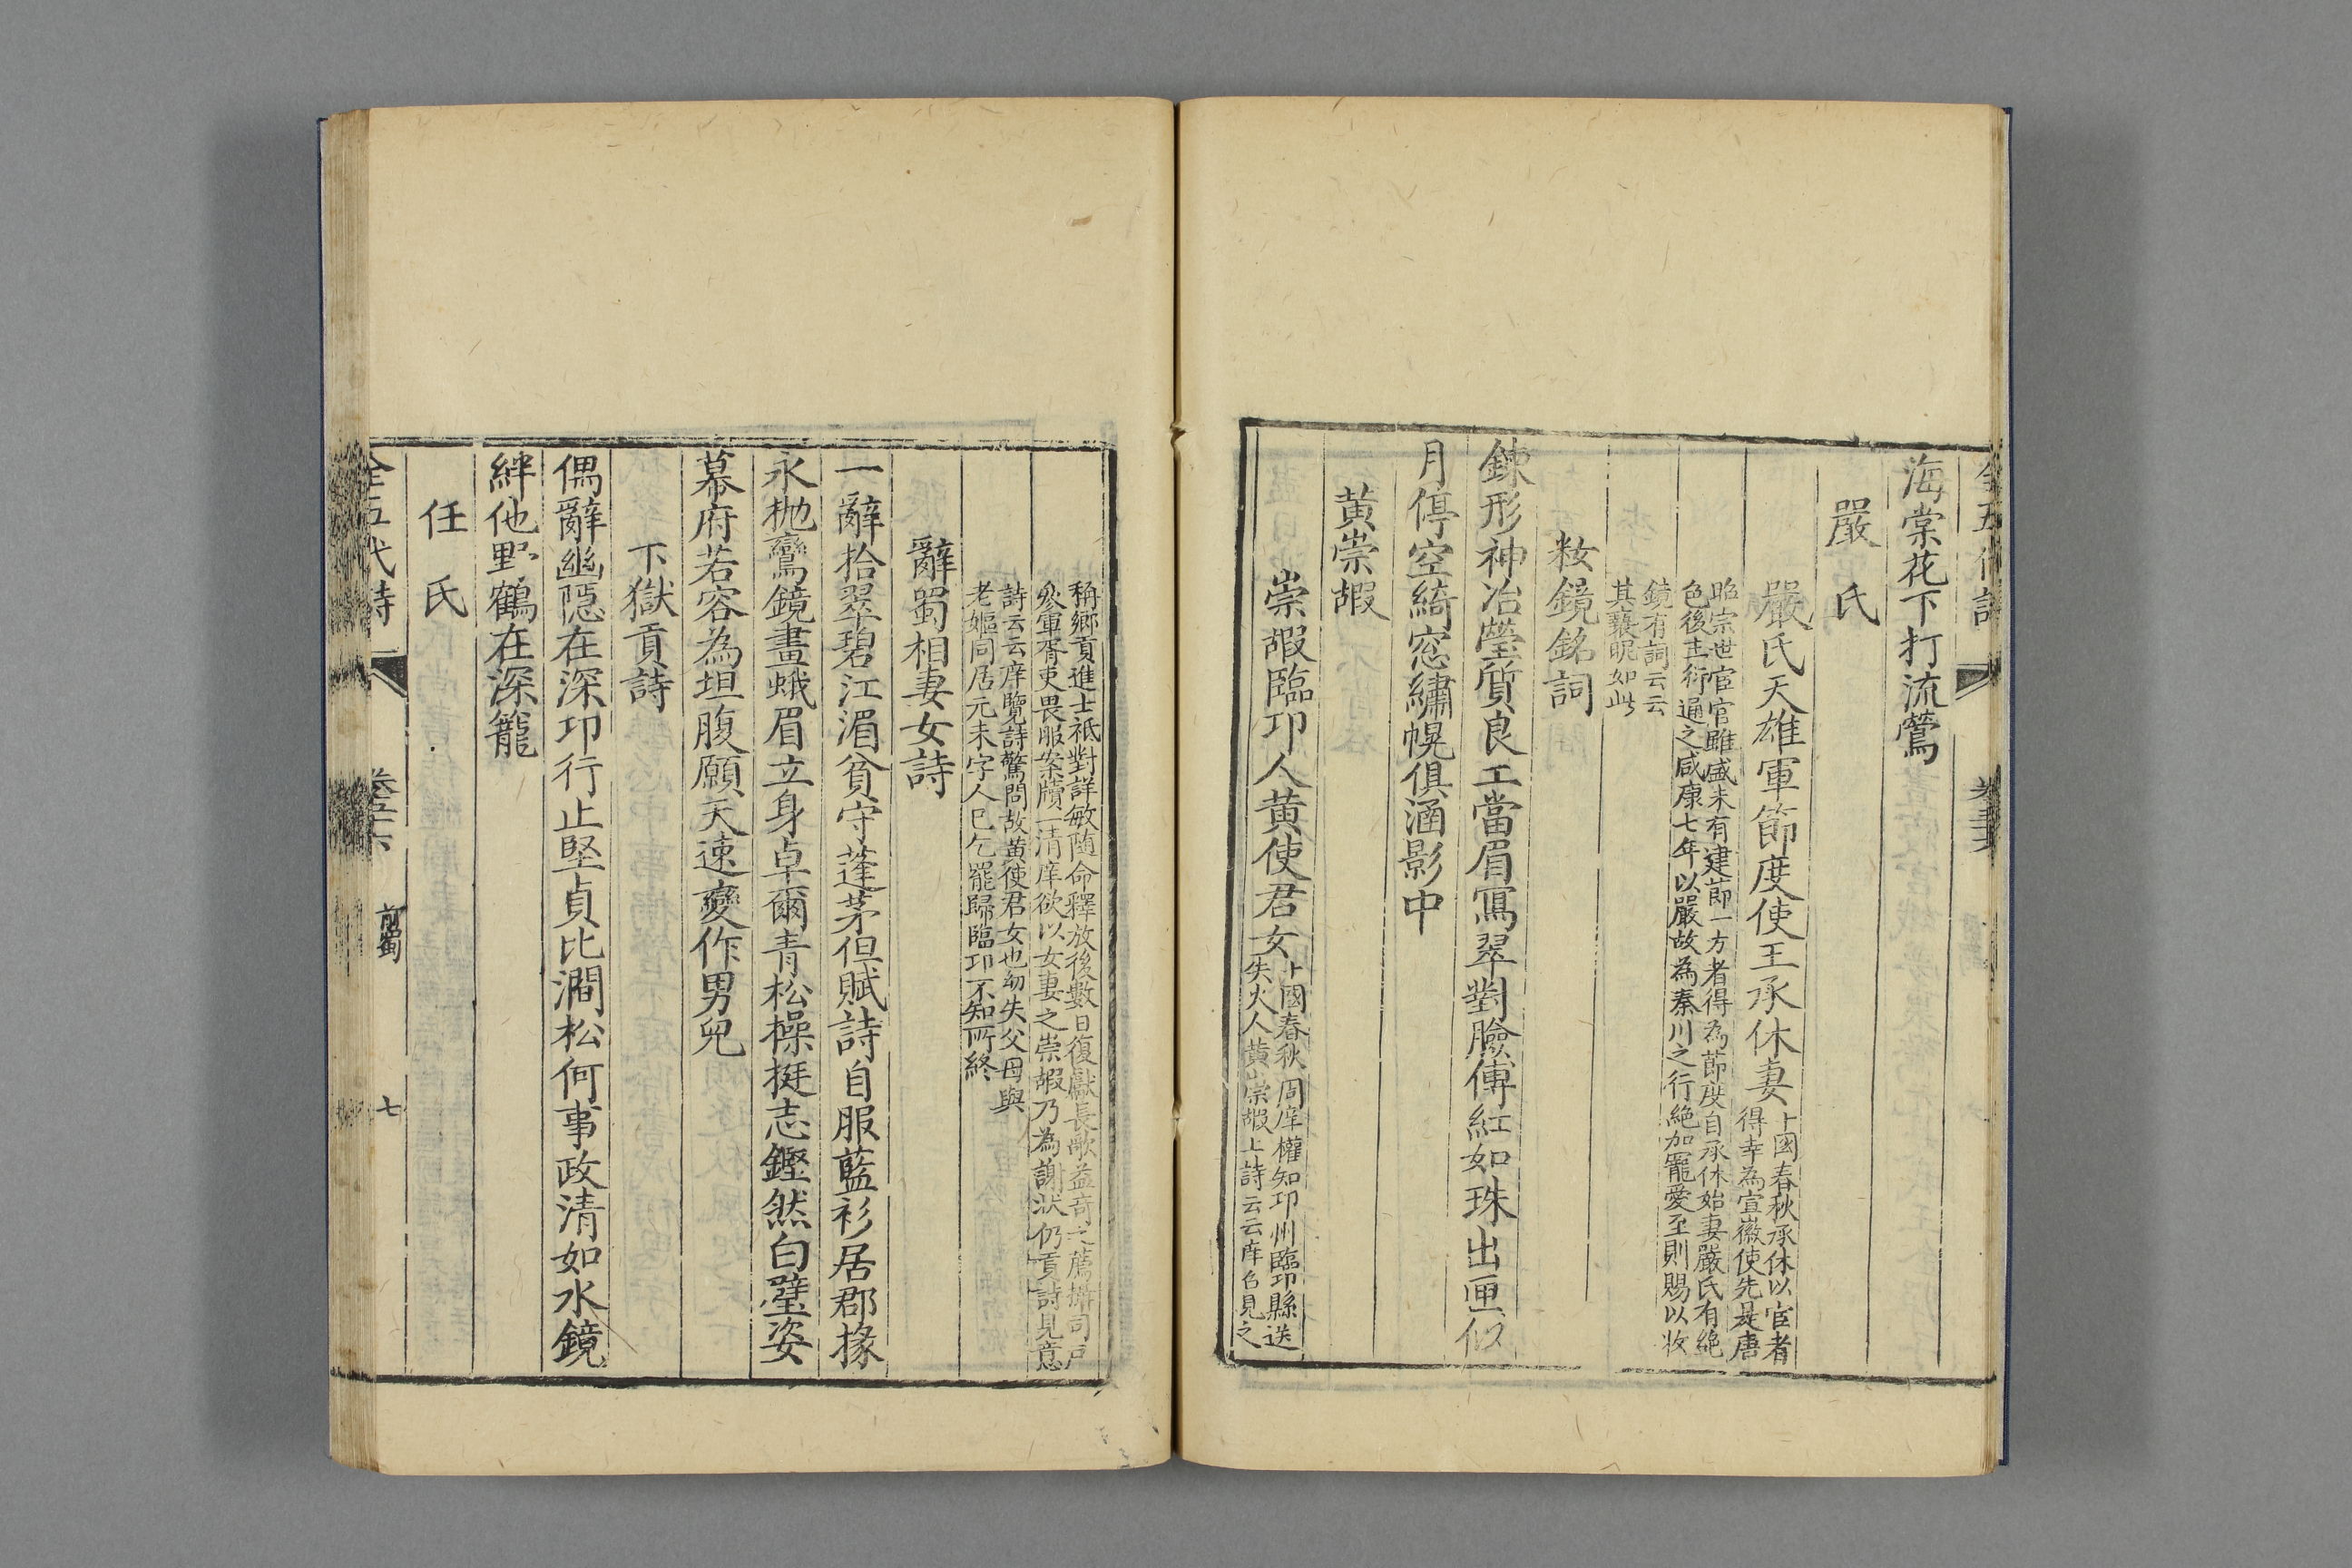 海棠花下打流鶯
嚴氏
嚴氏天雄軍節度使王承休妻
十國春秋承休以宦者
得幸為宣徽使先是唐
昭宗世宦官雖盛未有建節一方者得為節度自承休始妻嚴氏有絕
色後主衍通之咸康七年以嚴故為秦川之行絕加寵愛至則賜以妝
鏡有詞云云
其褻昵如此
粧鏡銘詞
鍊形神冶瑩質良工當眉寫翠對臉傅紅如珠出匣似
月停空綺窓繡幌俱涵影中
黃崇嘏
崇嘏臨邛人黃使君女
十國春秋周庠權知邛州臨邛縣送
失火人黃崇嘏上詩云云庠召見之
稱鄉貢進士祗對詳敏隨命釋放後數日復獻長歌益奇之薦攝司戶
叅軍胥吏畏服案牘一清庠欲以女妻之崇嘏乃為謝狀仍貢詩見意
詩云云庠覽詩驚問故黃使君女也幼失父母與
老嫗同居元未字人已乞罷歸臨邛不知所終
辭蜀相妻女詩
一辭拾翠碧江湄貧守蓬茅但賦詩自服藍衫居郡掾
永抛鸞鏡畫蛾眉立身卓爾青松操挺志鏗然白璧姿
幕府若容為坦腹願天速變作男兒
下獄貢詩
偶辭幽隱在深邛行止堅貞比澗松何事政清如水鏡
絆他野鶴在深籠
任氏
全五代詩
卷五十六
前蜀
七